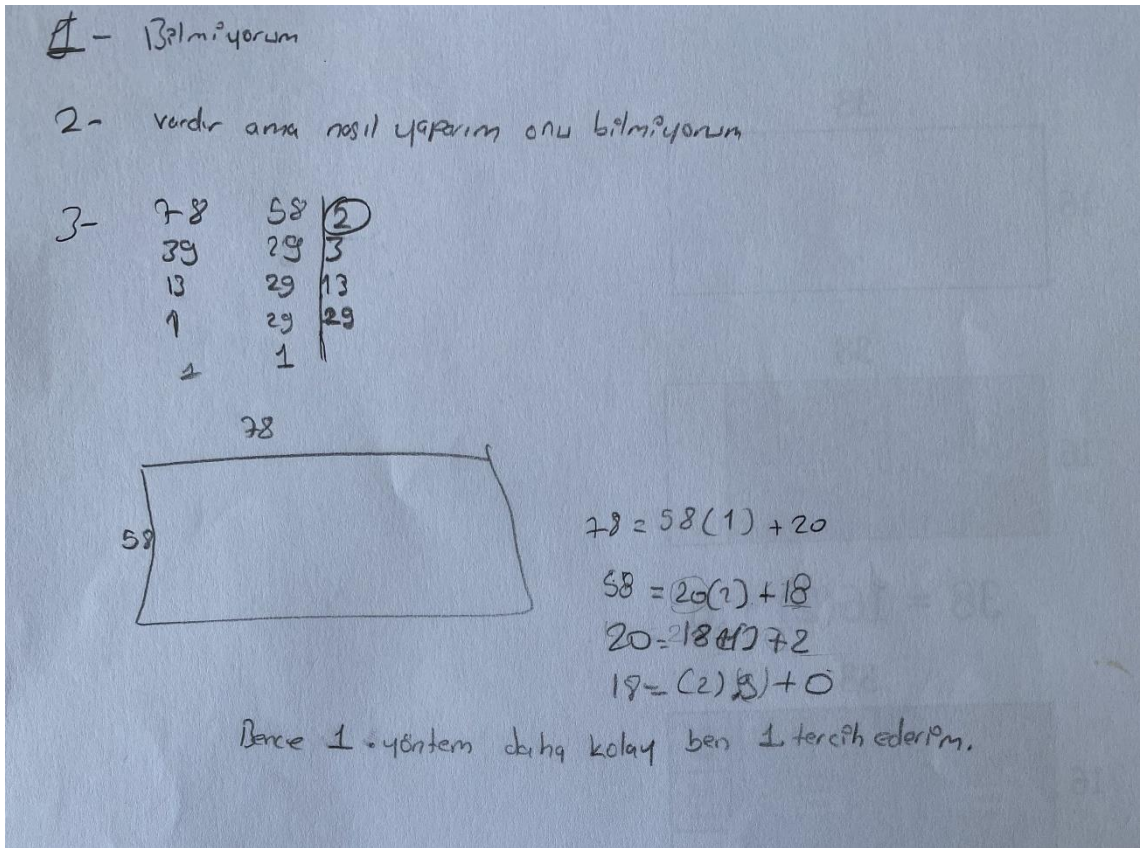 1- Bilmiyorum
2- vardır ama nasıl yaparım onu bilmiyorum
3- 78 58 2
39 29 3
13 29 13
1 29 29
1 1
78
58
78 = 58(1) + 20
58 = 20(2) + 18
20 = 18(1) + 2
18 = (2)(9) + 0
Bence 1. yöntem daha kolay ben 1. tercih ederim.